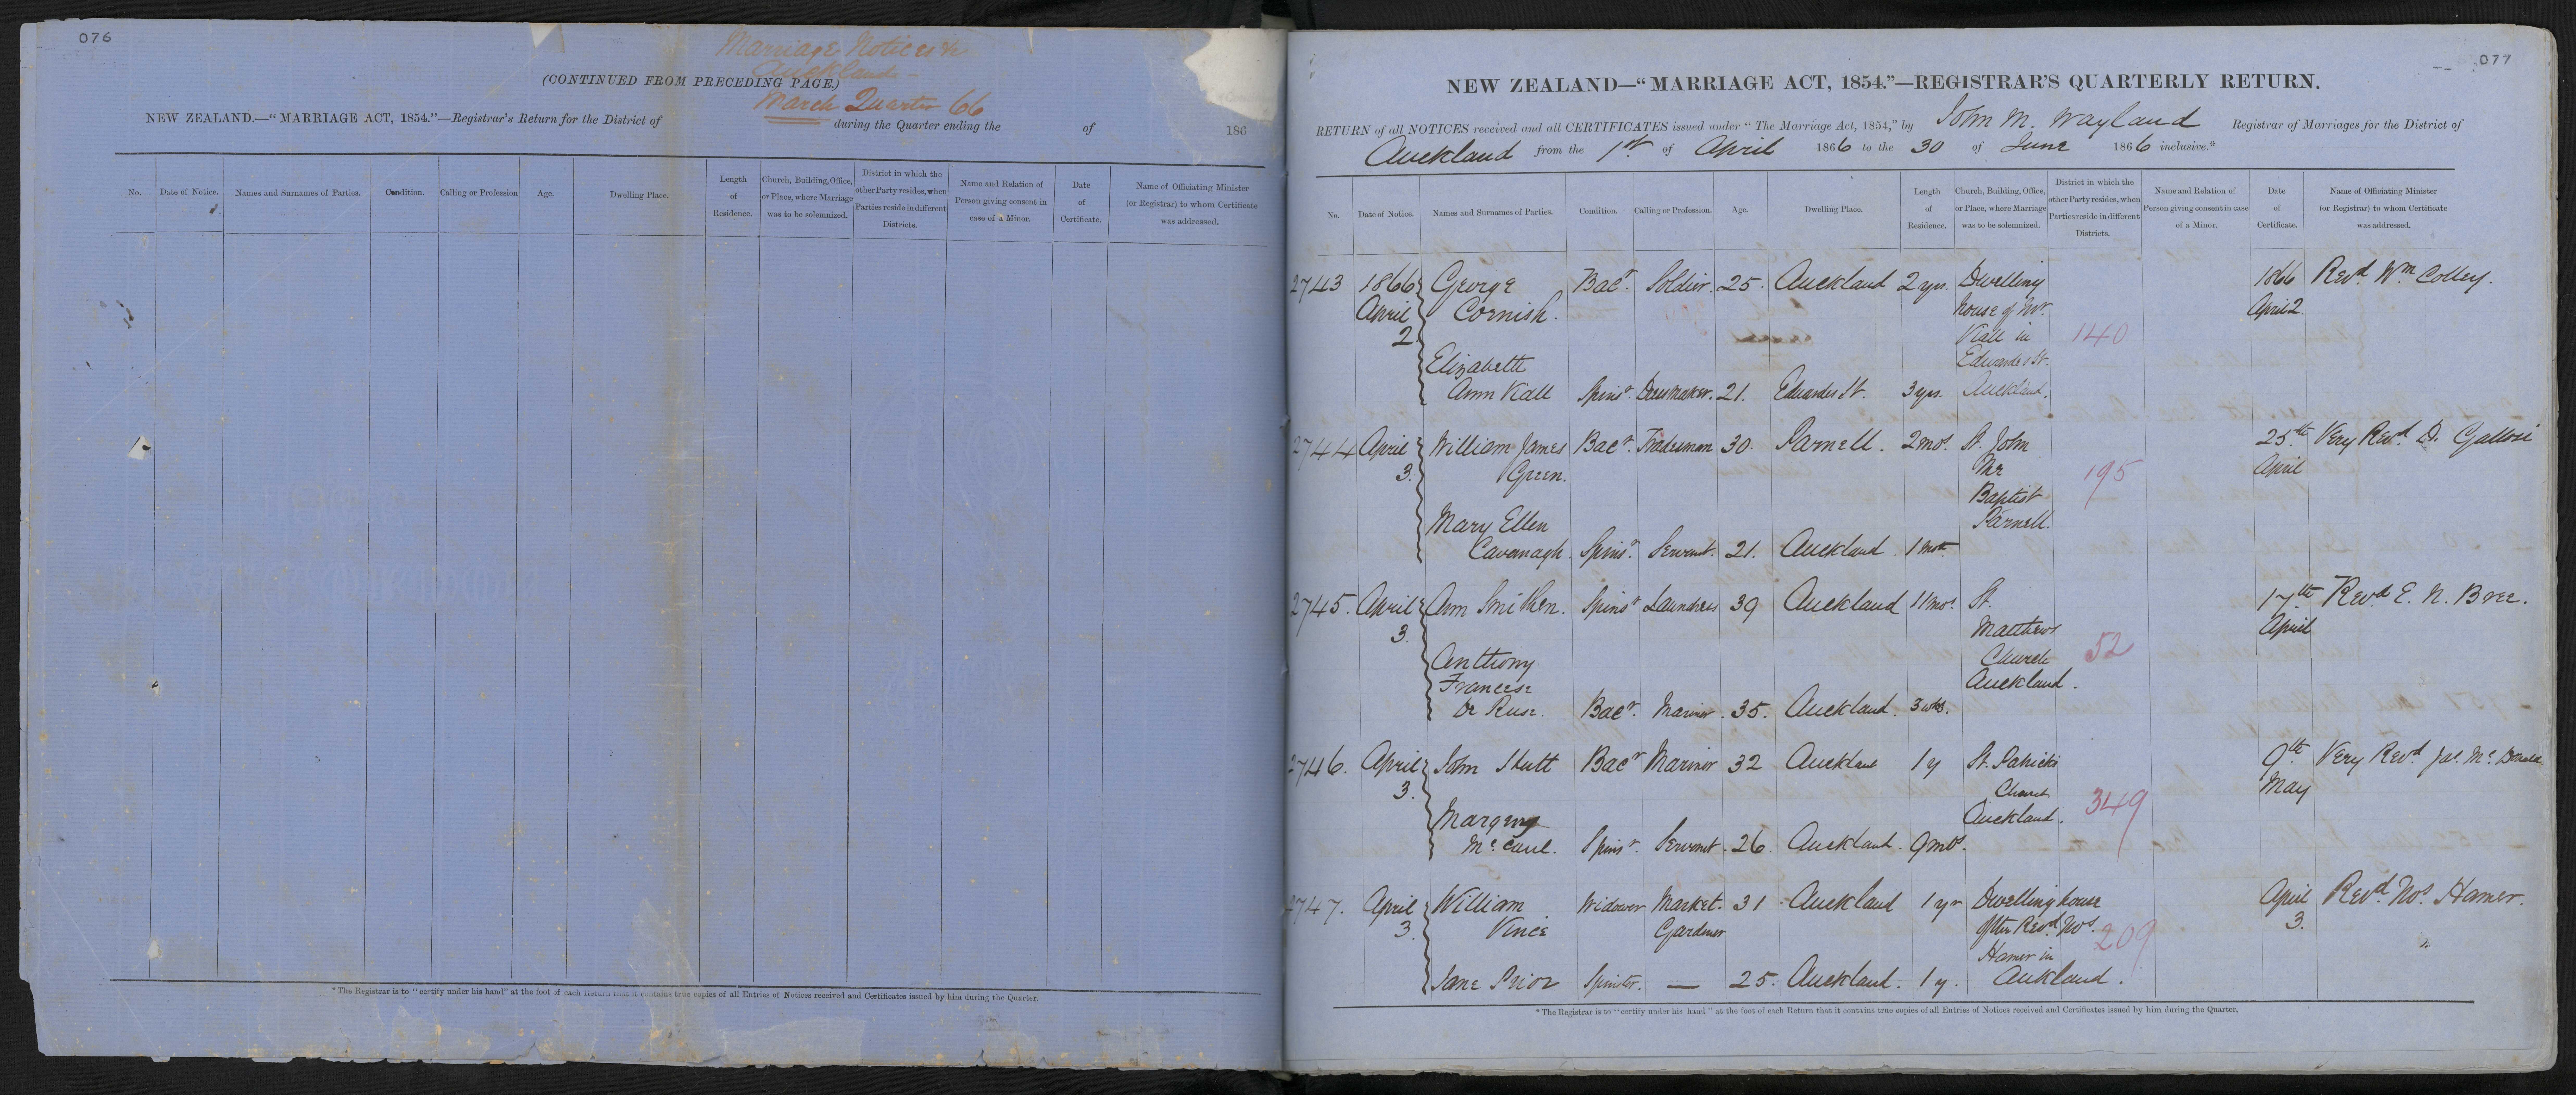 076
Marriage Notices &c
Auckland
(CONTINUED FROM PRECEDING PAGE.)
March Quarter 66
NEW ZEALAND.—“MARRIAGE ACT, 1854.”—Registrar's Return for the District of during the Quarter ending the of 186
No.
Date of Notice.
Names and Surnames of Parties.
Condition.
Calling or Profession
Age.
Dwelling Place.
Length
of
Residence.
Church, Building, Office,
or Place, where Marriage
was to be solemnized.
District in which the
other Party resides, when
Parties reside in different
Districts.
Name and Relation of
Person giving consent in
case of a Minor.
Date
of
Certificate.
Name of Officiating Minister
(or Registrar) to whom Certificate
was addressed.
*The Registrar is to “certify under his hand” at the foot of each Return that it contains true copies of all Entries of Notices received and Certificates issued by him during the Quarter.
077
NEW ZEALAND—“MARRIAGE ACT, 1854.”—REGISTRAR'S QUARTERLY RETURN.
RETURN of all NOTICES received and all CERTIFICATES issued under “The Marriage Act, 1854,” by John M. Wayland Registrar of Marriages for the District of
Auckland from the 1st of April 1866 to the 30 of June 1866 inclusive.*
No.
Date of Notice.
Names and Surnames of Parties.
Condition.
Calling or Profession.
Age.
Dwelling Place.
Length
of
Residence.
Church, Building, Office,
or Place, where Marriage
was to be solemnized.
District in which the
other Party resides, when
Parties reside in different
Districts.
Name and Relation of
Person giving consent in case
of a Minor.
Date
of
Certificate.
Name of Officiating Minister
(or Registrar) to whom Certificate
was addressed.
2743 1866 George Bacr. Soldier. 25. Auckland 2 yrs. Dwelling 1866 Revd. Wm Colley.
April Cornish. house of Mr. April 2
2 Viall in 140
Elizabeth Edwardes St.
Ann Viall Spinsr. Dressmaker. 21. Edwardes St. 3 yrs. Auckland.
2744 April William James Bacr. Tradesman 30. Parnell. 2 mos. St. John 25th Very Revd. D.
3. Green. the 195 April
Baptist
Mary Ellen Parnell.
Cavanagh. Spinsr. Servant. 21. Auckland. 1 mth.
2745. April Ann Smithen. Spinsr Laundress 39 Auckland 11 mos. St. 17th Revd. E. N. Bree.
3. Matthews April
Anthony Church 52
Auckland.
De Bacr. Mariner. 35. Auckland. 3 wks.
2746. April John Stutt Bacr Mariner 32 Auckland 1 y St. Patricks 9th Very Revd Jas. McDonald
3. Church 349 May
Margery Auckland.
Spinsr. Servant. 26. Auckland. 9 mos.
2747. April William Widower Market. 31 Auckland 1 yr Dwelling house April Revd. Nos. Hamer.
3. Vince Gardener of the Revd. Nos. 209 3.
Hamer in
Jane Prior Spinster. — 25. Auckland. 1 y. Auckland.
*The Registrar is to “certify under his hand” at the foot of each Return that it contains true copies of all Entries of Notices received and Certificates issued by him during the Quarter.